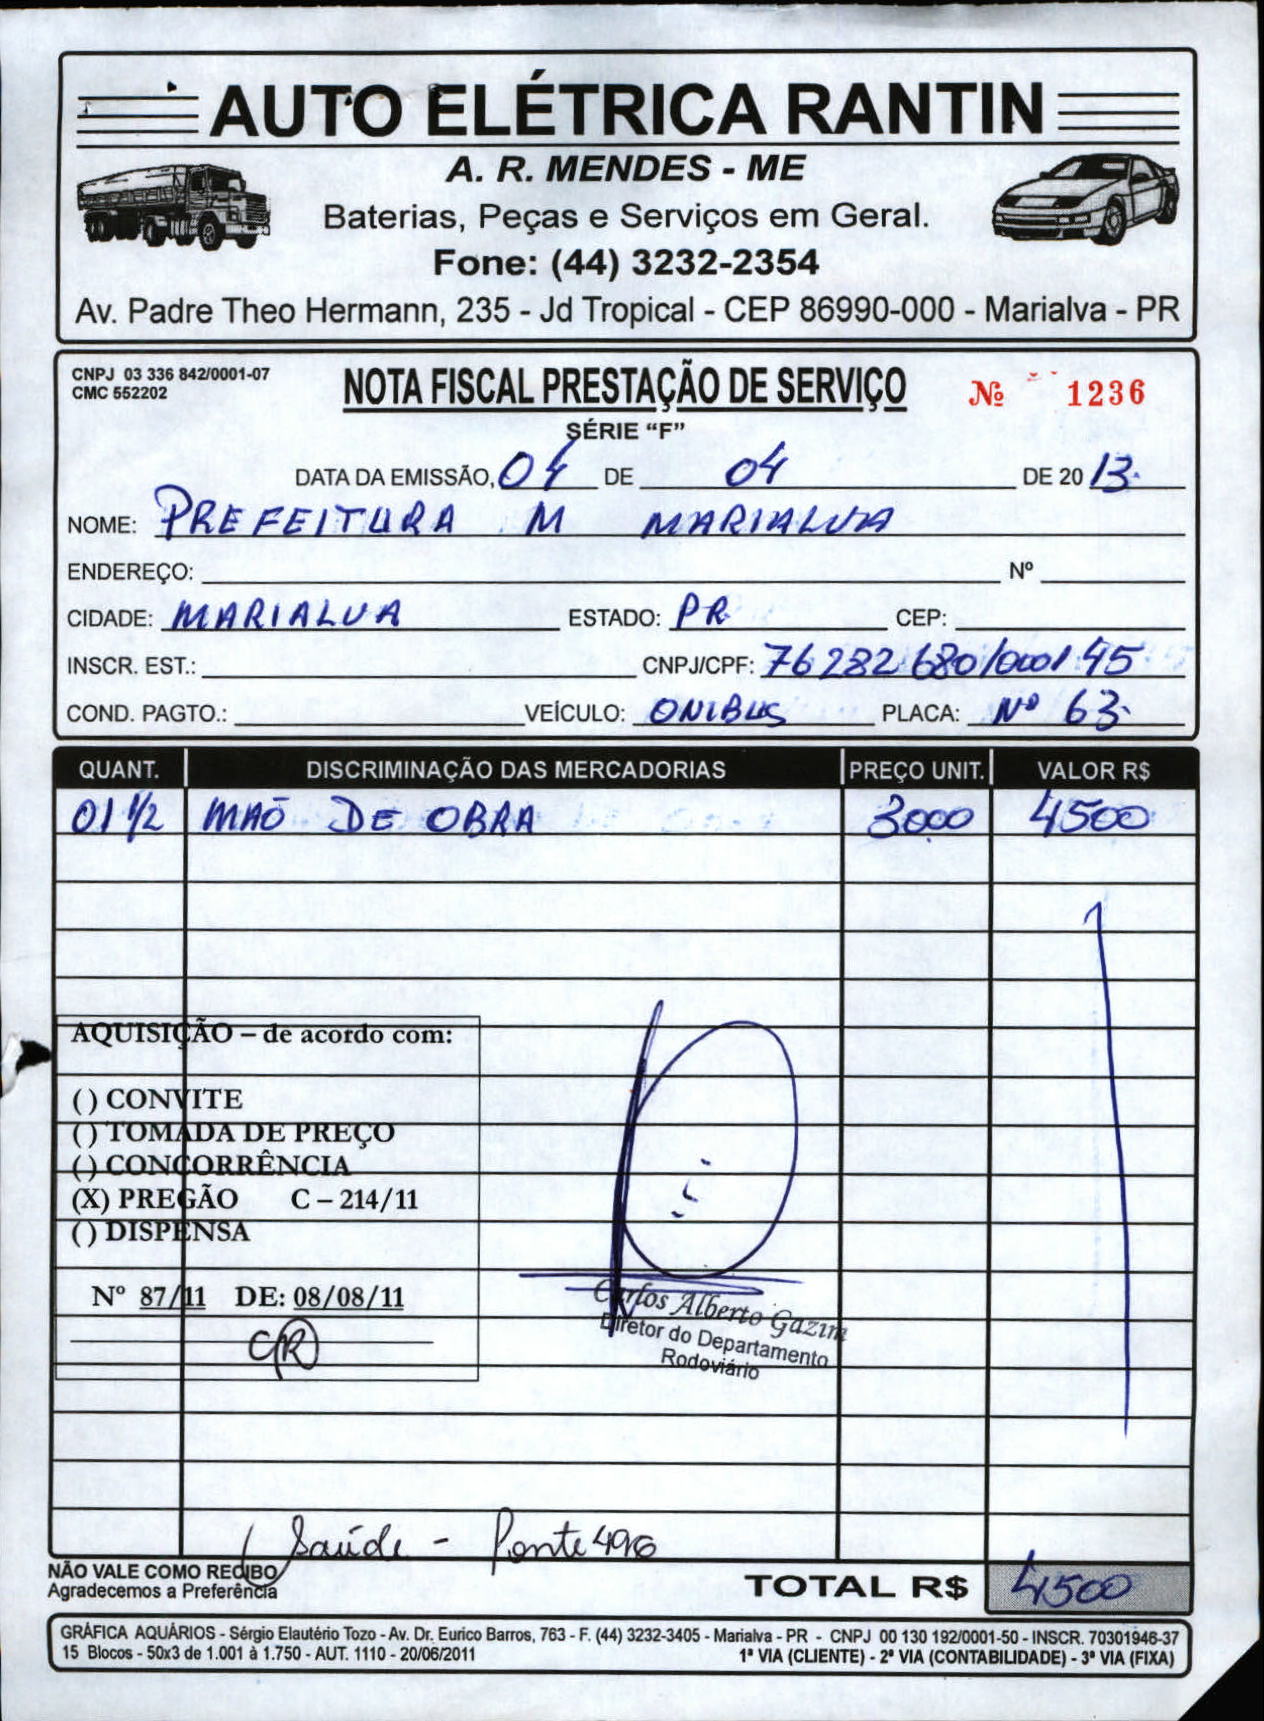 AUTO ELÉTRICA RANTIN
A. R. MENDES - ME
Baterias, Peças e Serviços em Geral.
Fone: (44) 3232-2354
Av. Padre Theo Hermann, 235 - Jd Tropical - CEP 86990-000 - Marialva - PR
CNPJ 03 336 842/0001-07
CMC 552202
NOTA FISCAL PRESTAÇÃO DE SERVIÇO
Nº 1236
SÉRIE "F"
DATA DA EMISSÃO, 04 DE 04 DE 2013
NOME: PREFEITURA M MARIALVA
ENDEREÇO: Nº
CIDADE: MARIALVA ESTADO: PR CEP:
INSCR. EST.: CNPJ/CPF: 76282680/0001 45
COND. PAGTO.: VEÍCULO: ONIBUS PLACA: Nº 63
QUANT. DISCRIMINAÇÃO DAS MERCADORIAS PREÇO UNIT. VALOR R$
01 1/2 MAÕ DE OBRA 3000 4500
AQUISIÇÃO – de acordo com:
( ) CONVITE
( ) TOMADA DE PREÇO
( ) CONCORRÊNCIA
(X) PREGÃO C – 214/11
( ) DISPENSA
Nº 87/11 DE: 08/08/11
CR
Carlos Alberto Gazim
Diretor do Departamento
Rodoviário
Saúde - Fonte 496
NÃO VALE COMO RECIBO
Agradecemos a Preferência
TOTAL R$ 4500
GRÁFICA AQUÁRIOS - Sérgio Elautério Tozo - Av. Dr. Eurico Barros, 763 - F. (44) 3232-3405 - Marialva - PR - CNPJ 00 130 192/0001-50 - INSCR. 70301946-37
15 Blocos - 50x3 de 1.001 à 1.750 - AUT. 1110 - 20/06/2011 1ª VIA (CLIENTE) - 2ª VIA (CONTABILIDADE) - 3ª VIA (FIXA)